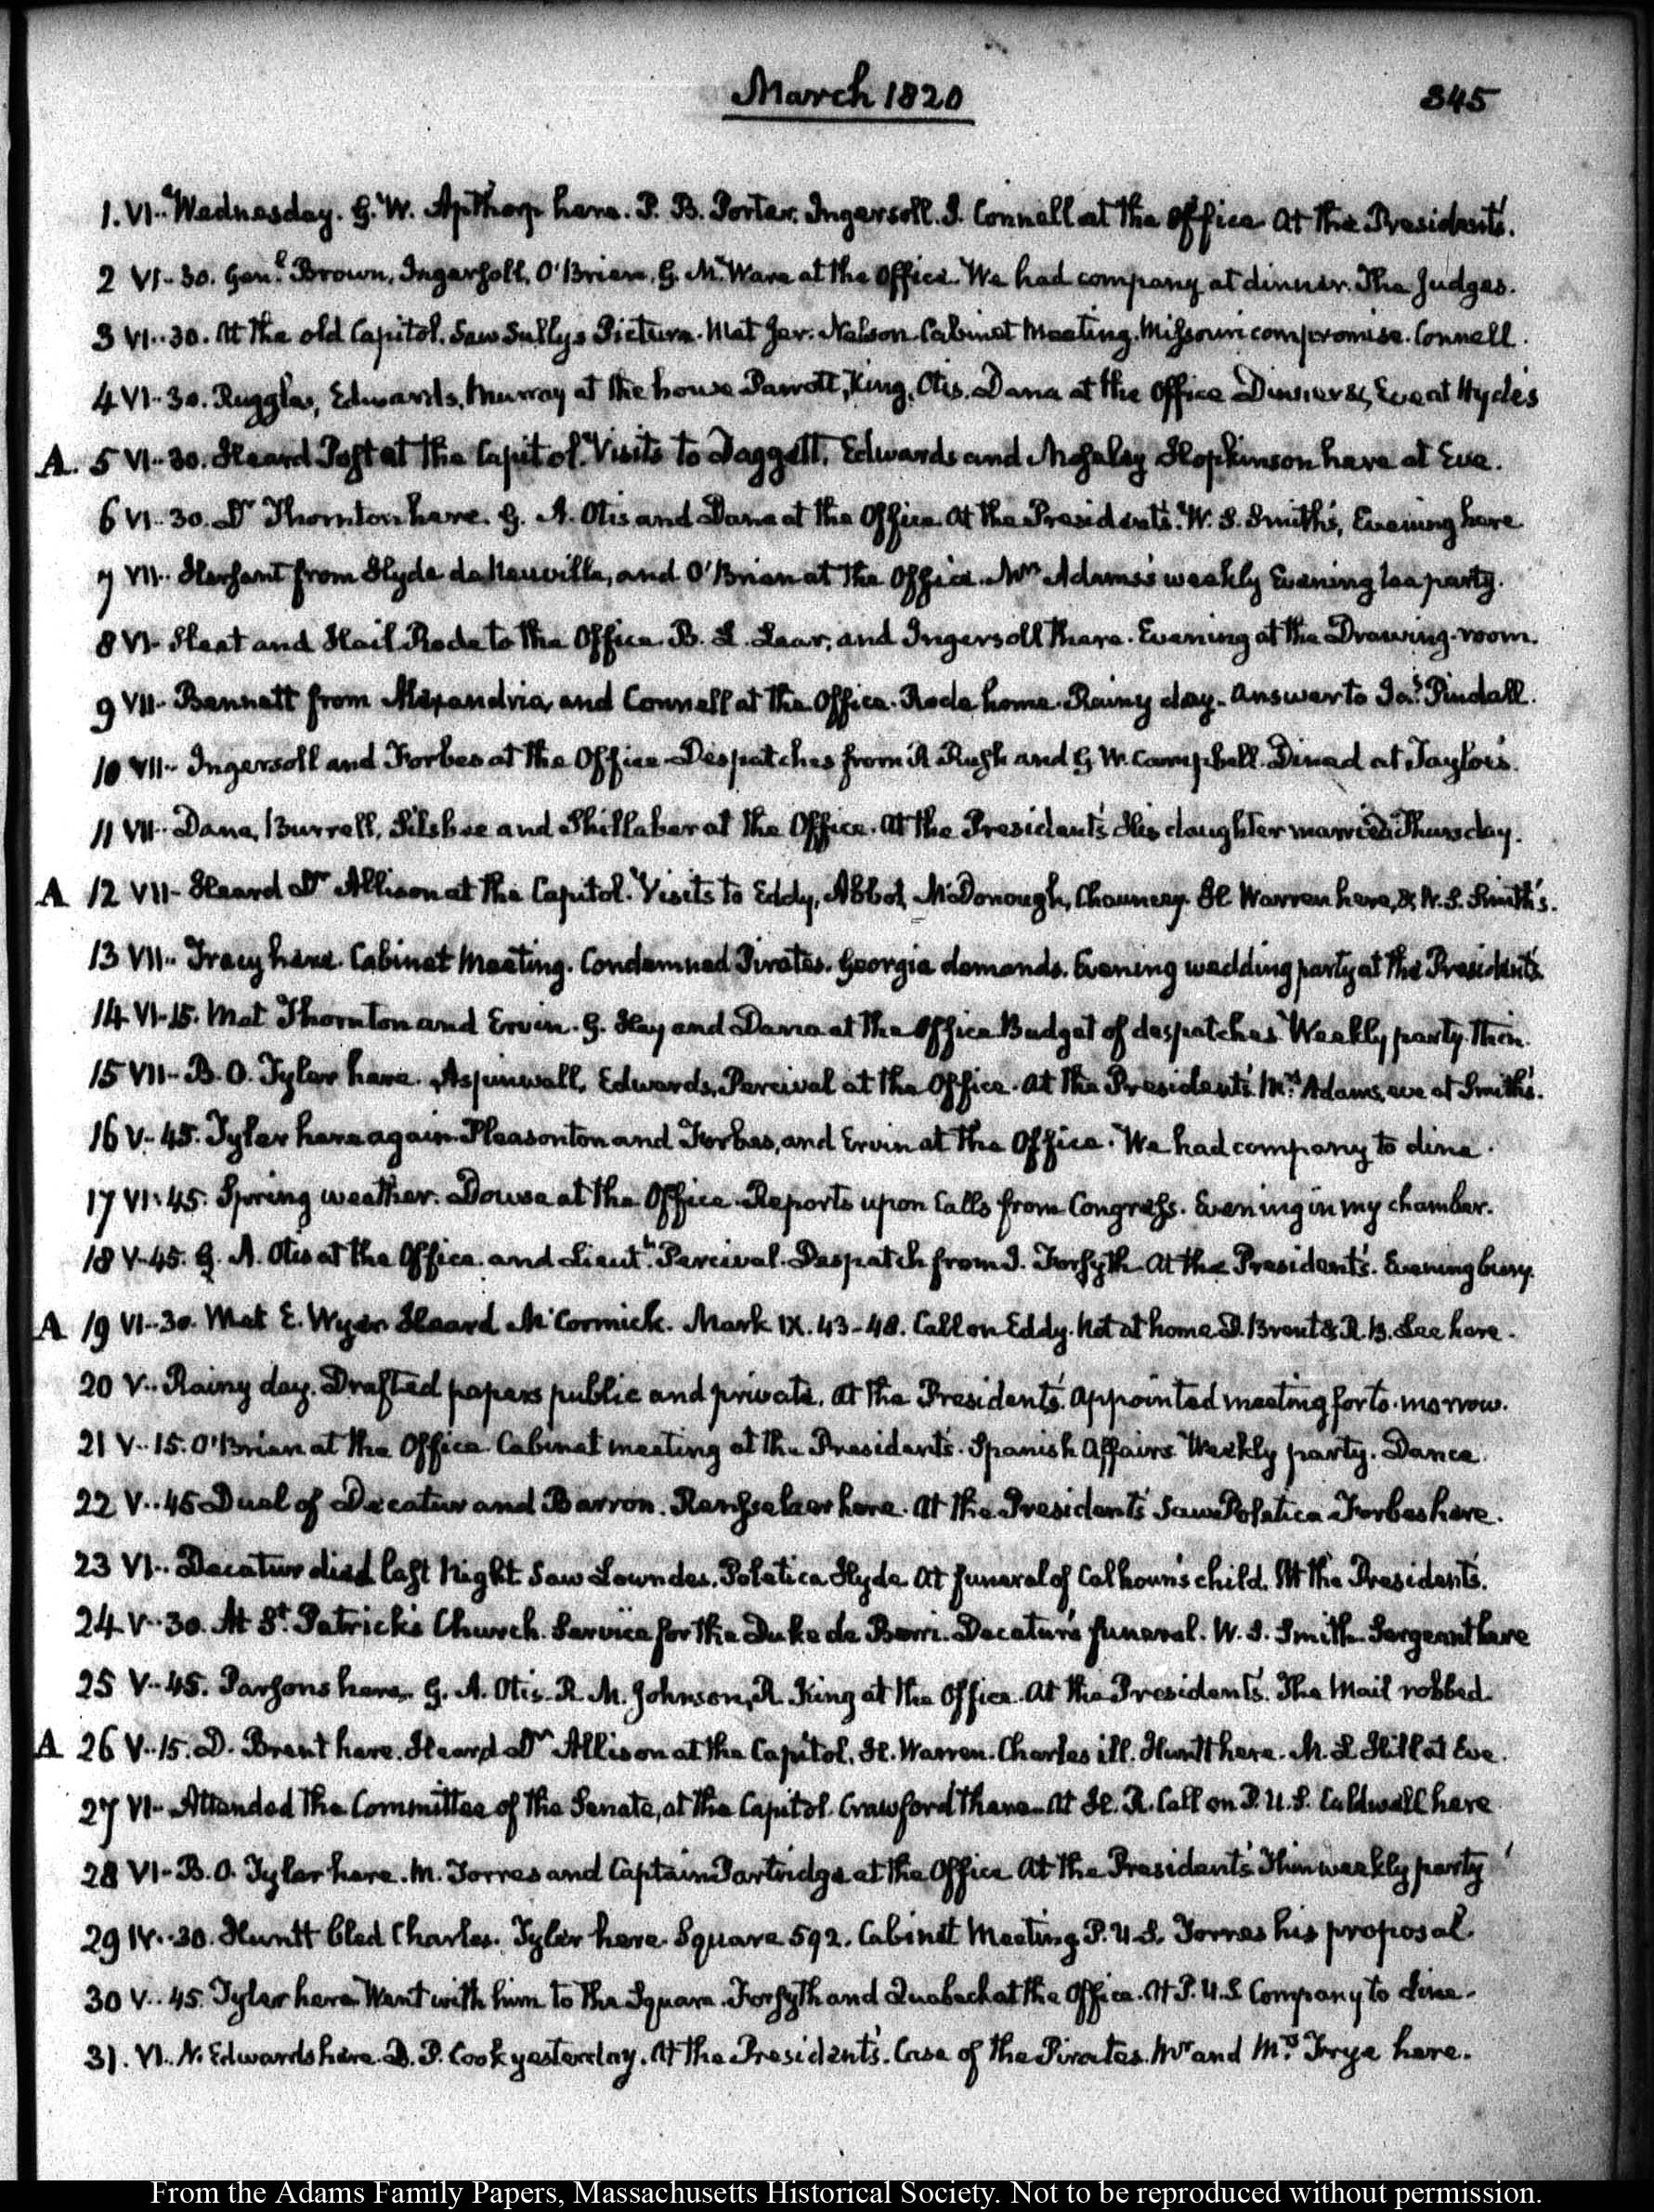 March 1820
345
1. VI.. Wednesday. G. W. Apthorp here. P. B. Porter. Ingersoll. J. Connell at the Office At the Presidents.
2 VI-30. Genl. Brown, Ingersoll, O'Brien, G. M. Ware at the Office. We had company at dinner. The Judges.
3 VI..30. At the old Capitol. Saw Sullys Picture. Met Jer. Nelson Cabinet Meeting. Missouri compromise. Connell.
4 VI-30. Ruggles, Edwards, Murray at the house Parrott, King, Otis. Dana at the Office Dinner &c, Eve at Hyde's
A. 5 VI..30. Heard Post at the Capitol. Visits to Daggett, Edwards and Mosely Hopkinson here at Eve.
6 VI..30. Dr Thornton here. G. A. Otis and Dana at the Office. At the Presidents. W. S. Smith's, Evening here
7 VII.. Hersant from Hyde de Neuville, and O'Brien at the Office. Mrs Adams's weekly Evening tea party.
8 VI- Sleet and Hail Rode to the Office. B. L. Lear, and Ingersoll there. Evening at the Drawing-room.
9 VII- Bennett from Alexandria, and Connell at the Office. Rode home. Rainy day. Answer to Jas. Pindall.
10 VII- Ingersoll and Forbes at the Office Despatches from R Rush and G W. Campbell. Dined at Taylor's.
11 VII- Dana, Burrell, Silsbee and Shillaber at the Office. At the President's His daughter married Thursday.
A 12 VII- Heard Dr Allison at the Capitol. Visits to Eddy, Abbot, McDonough, Chauncey. H. Warren here, & W. S. Smith's.
13 VII.. Tracy here. Cabinet Meeting. Condemned Pirates. Georgia demands. Evening wedding party at the Presidents
14 VI-15. Met Thornton and Ervin. G. Hay and Dana at the Office Budget of despatches Weekly party. Thin.
15 VII- B. O. Tyler here. Aspinwall, Edwards, Percival at the Office. At the President's. Mrs. Adams, eve at Smith's.
16 V-45. Tyler here again. Pleasonton and Forbes, and Ervin at the Office. We had company to dine.
17 VI:45. Spring weather. Dowse at the Office Reports upon Calls from Congress. Evening in my chamber.
18 V-45. G. A. Otis at the Office and Lieutt. Percival. Despatch from J. Forsyth At the President's. Evening busy.
A 19 VI..30. Met E. Wyer Heard McCormick. Mark IX. 43-48. Call on Eddy. Not at home D. Brent & R. B. Lee here.
20 V.. Rainy day. Drafted papers public and private. At the President's. Appointed meeting for to-morrow.
21 V..15. O'Brien at the Office Cabinet meeting at the President's. Spanish Affairs Weekly party. Dance.
22 V..45 Duel of Decatur and Barron. Rensselaer here. At the President's Saw Poletica Forbes here.
23 VI.. Decatur died last Night Saw Lowndes. Poletica Hyde At funeral of Calhoun's child. At the President's.
24 V-30. At St. Patrick's Church. Service for the Duke de Berri. Decatur's funeral. W. S. Smith Sergeant here
25 V-45. Parsons here. G. A. Otis. R. M. Johnson, R. King at the Office. At the President's. The Mail robbed.
A 26 V..15. D. Brent here. Heard Dr Allison at the Capitol, H. Warren. Charles ill. Huntt here. M. L. Hill at Eve.
27 VI- Attended the Committee of the Senate, at the Capitol. Crawford there. At H. R. Call on P. U. S. Caldwell here
28 VI- B. O. Tyler here. M. Torres and Captain Partridge at the Office At the President's Thin weekly party
29 IV..30. Huntt bled Charles. Tyler here. Square 592. Cabinet Meeting P. U. S. Torres his proposal.
30 V..45. Tyler here Went with him to the Square. Forsyth and at the Office. At P. U. S. Company to dine.
31. VI.. N. Edwards here. D. P. Cook yesterday. At the President's. Case of the Pirates. Mr and Mrs Frye here.
From the Adams Family Papers, Massachusetts Historical Society. Not to be reproduced without permission.